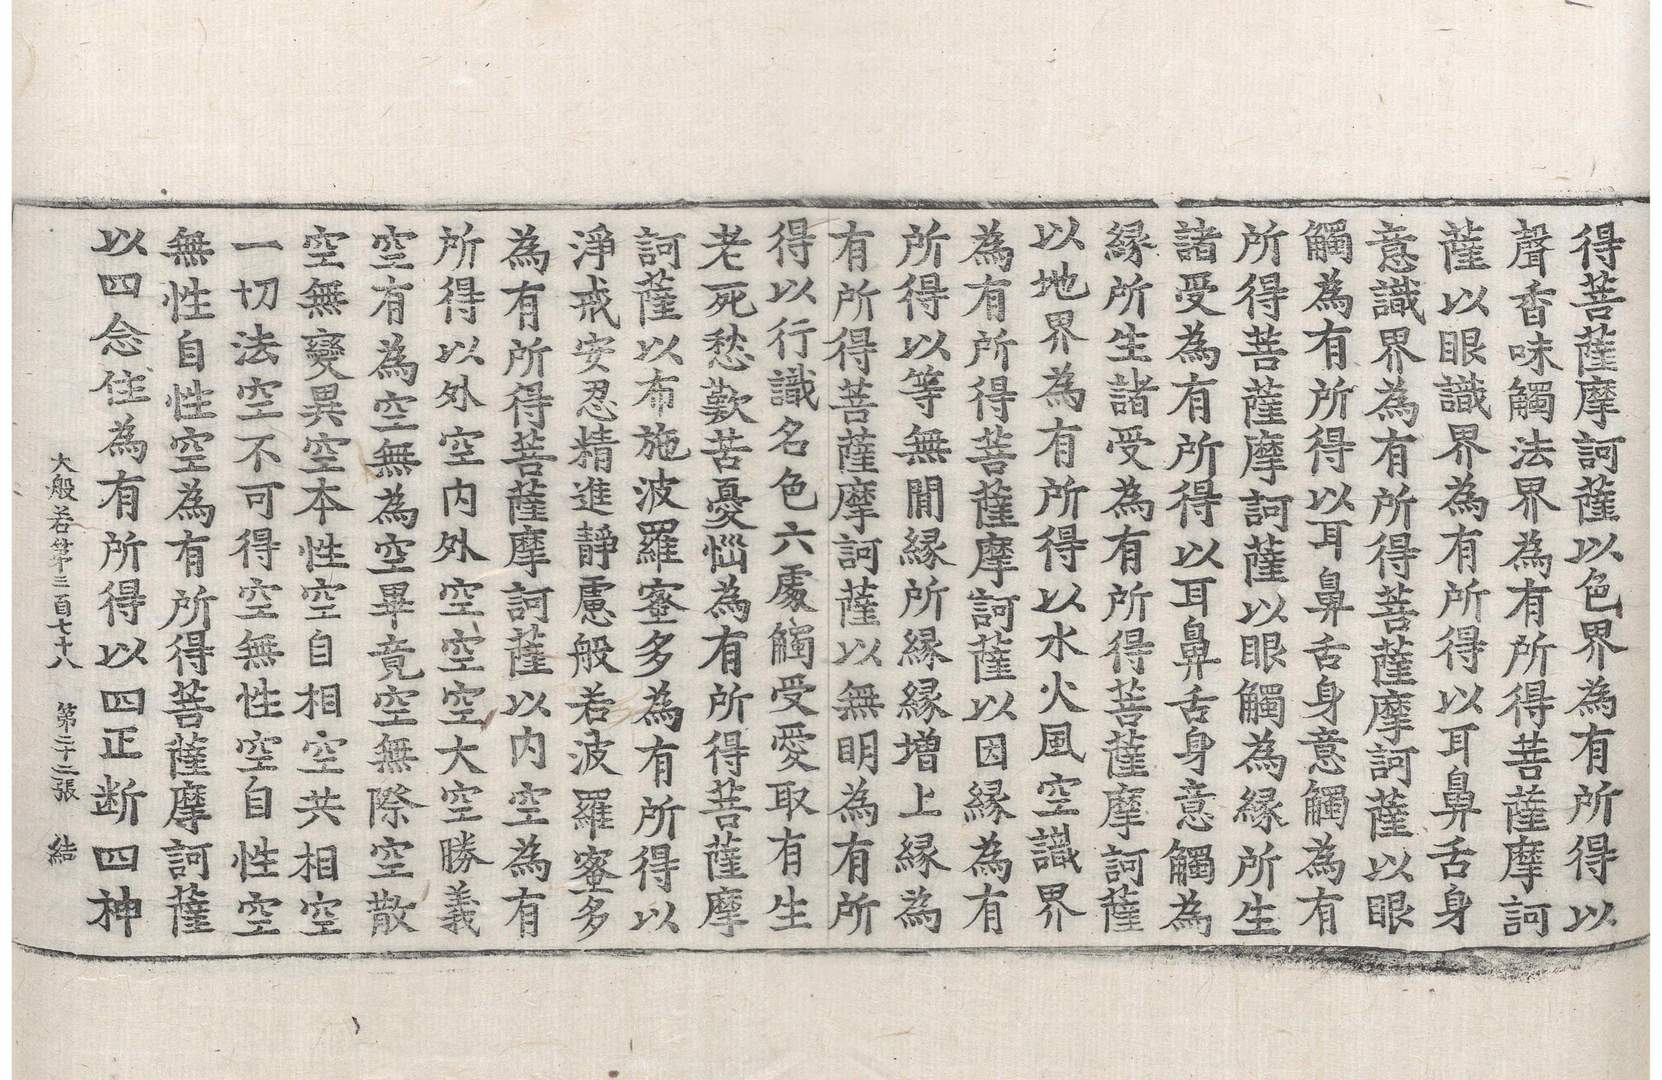 得菩薩摩訶薩以色界為有所得以
聲香味觸法界為有所得菩薩摩訶
薩以眼識界為有所得以耳鼻舌身
意識界為有所得菩薩摩訶薩以眼
觸為有所得以耳鼻舌身意觸為有
所得菩薩摩訶薩以眼觸為緣所生
諸受為有所得以耳鼻舌身意觸為
緣所生諸受為有所得菩薩摩訶薩
以地界為有所得以水火風空識界
為有所得菩薩摩訶薩以因緣為有
所得以等無間緣所緣緣增上緣為
有所得菩薩摩訶薩以無明為有所
得以行識名色六處觸受愛取有生
老死愁歎苦憂惱為有所得菩薩摩
訶薩以布施波羅蜜多為有所得以
淨戒安忍精進靜慮般若波羅蜜多
為有所得菩薩摩訶薩以內空為有
所得以外空內外空空空大空勝義
空有為空無為空畢竟空無際空散
空無變異空本性空自相空共相空
一切法空不可得空無性空自性空
無性自性空為有所得菩薩摩訶薩
以四念住為有所得以四正断四神
大般若第三百七十八 第二十二張 結